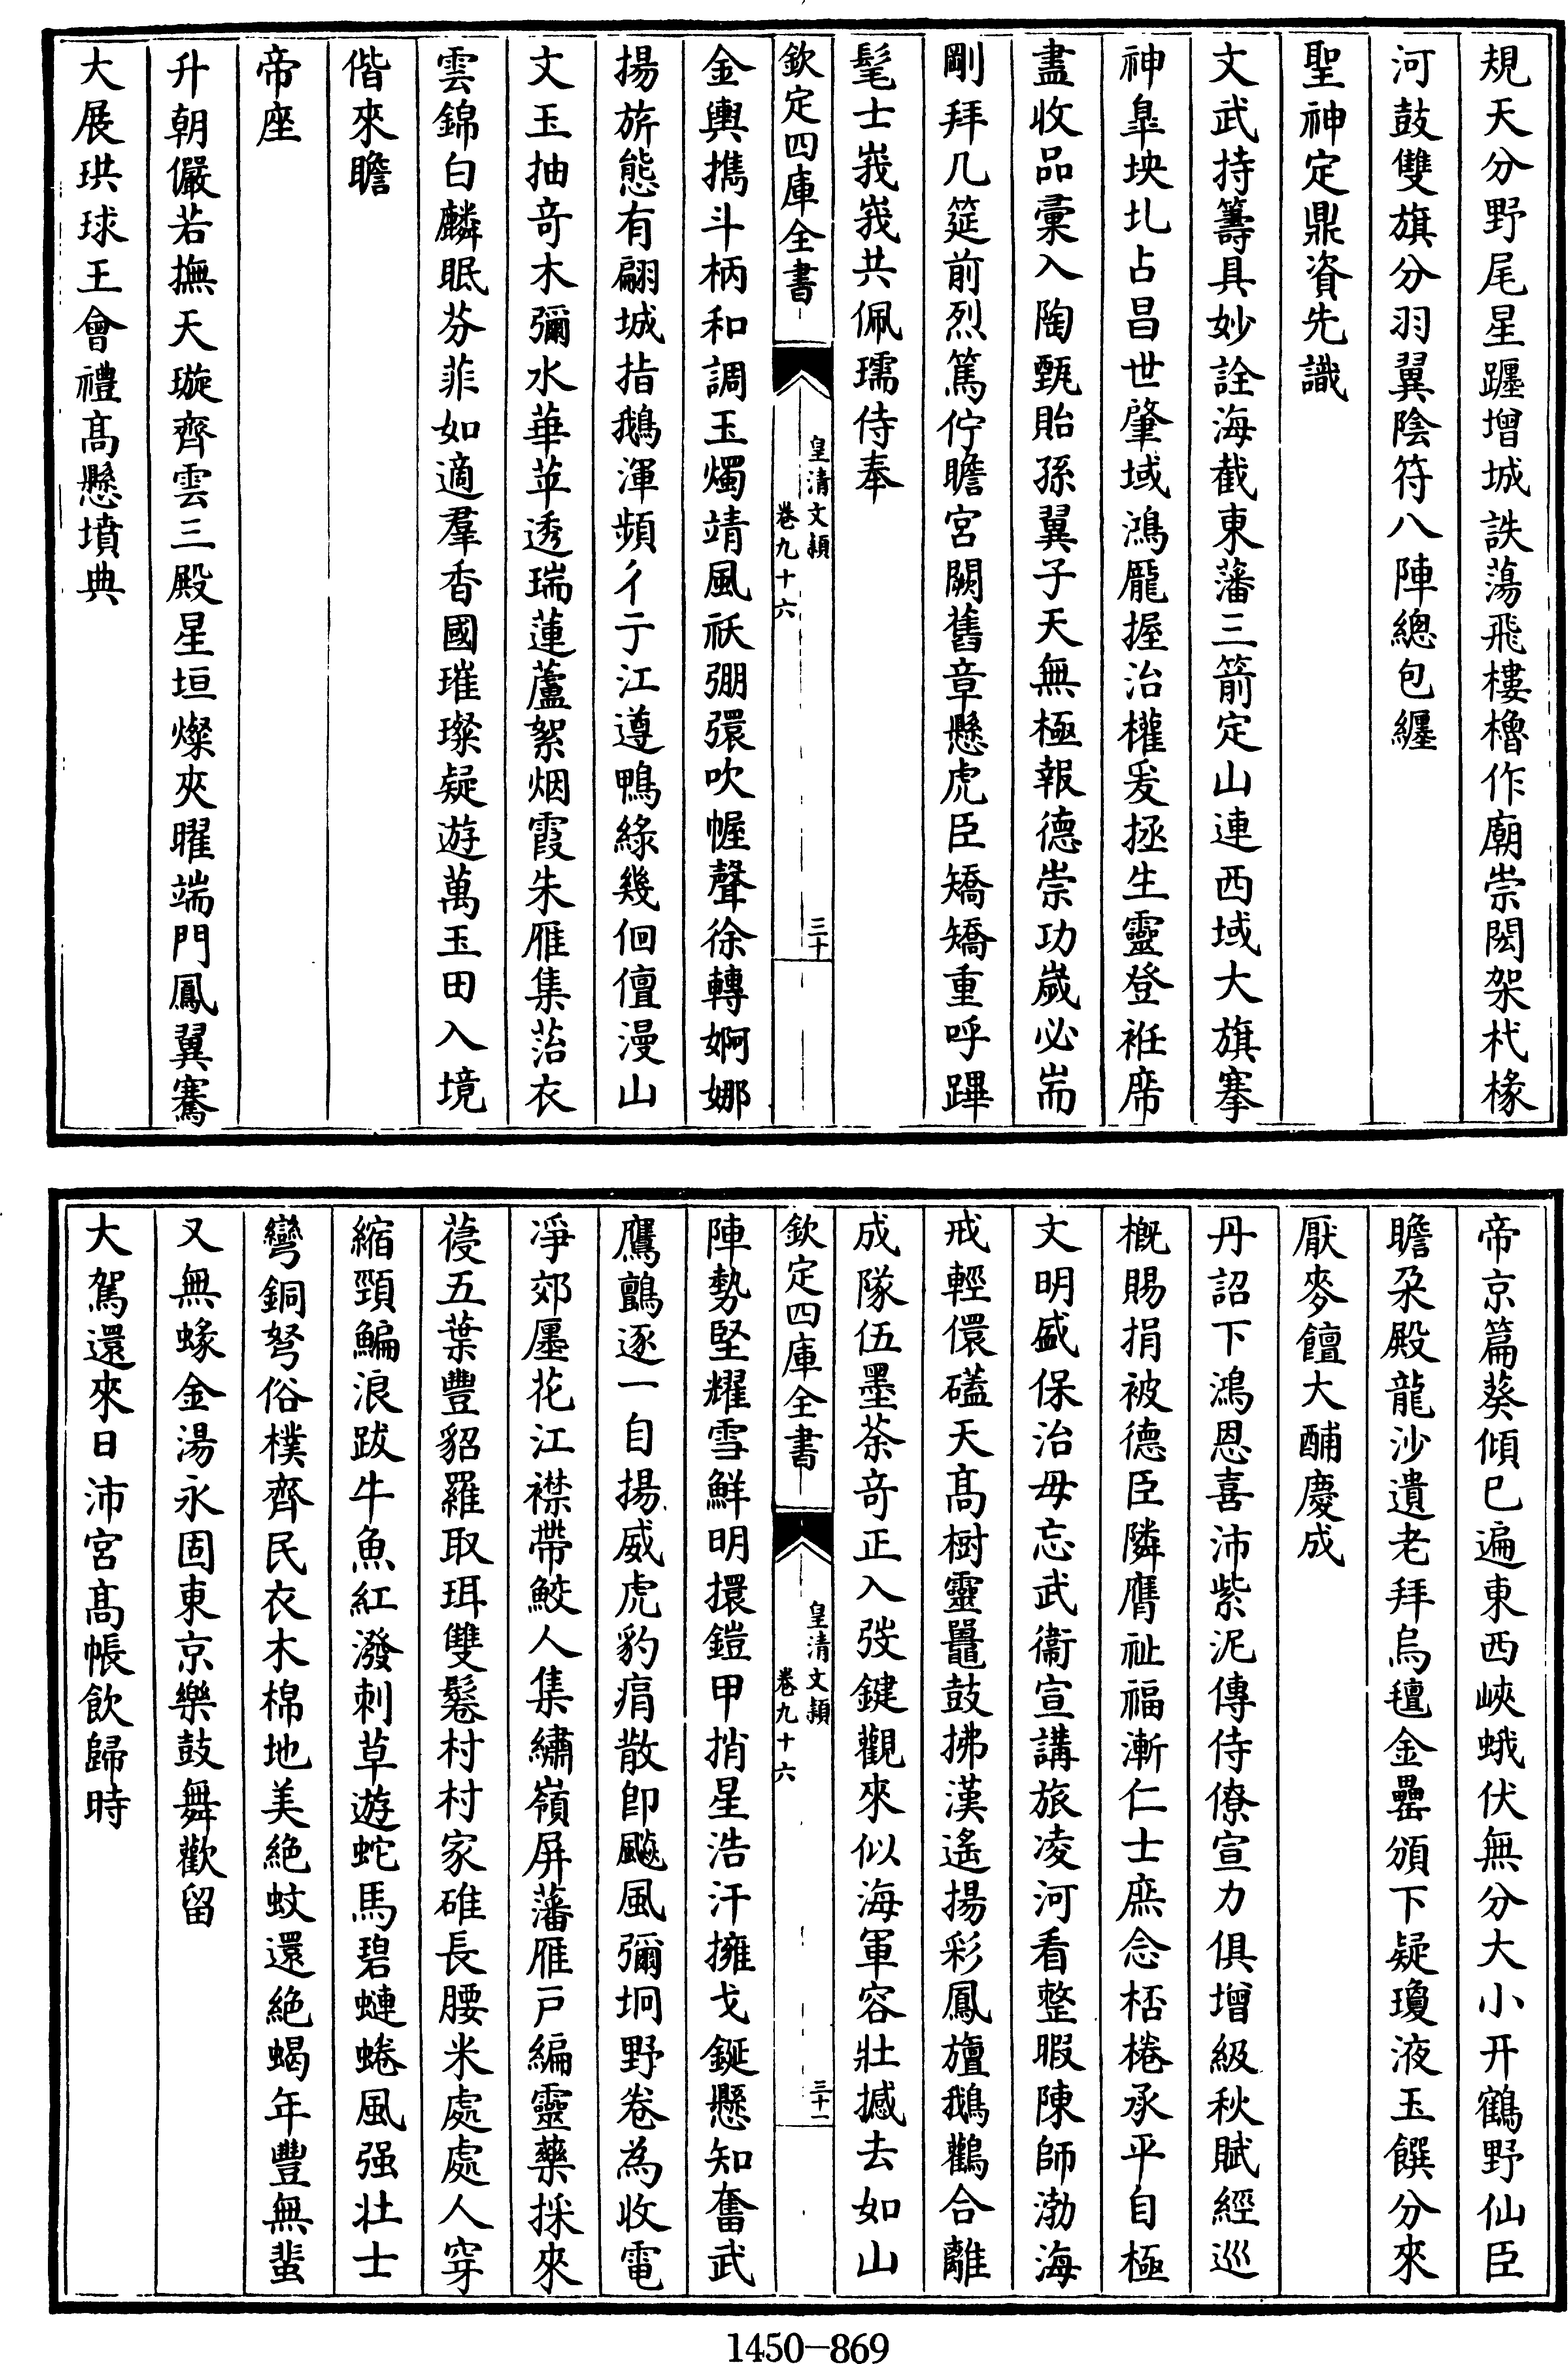 規天分野尾星躔增城詄蕩飛樓櫓作廟崇閎架杙椽
河鼓雙旗分羽翼陰符八陣總包纏
聖神定鼎資先識
文武持籌具妙詮海截東藩三箭定山連西域大旗搴
神臯坱圠占昌世肇域鴻龎握治權爰拯生靈登袵席
盡收品彚入陶甄貽孫翼子天無極報德崇功嵗必耑
剛拜几筵前烈篤佇瞻宮闕舊章懸虎臣矯矯重呼蹕
髦士峩峩共佩瓀侍奉
欽定四庫全書
皇清文穎
卷九十六
三十
金輿擕斗柄和調玉燭靖風祅弸彋吹幄聲徐轉婀娜
揚旂態有翩城指鵝渾頻彳亍江遵鴨綠幾佪儃漫山
文玉抽竒木彌水華苹透瑞蓮蘆絮烟霞朱雁集萡衣
雲錦白麟眠芬菲如適羣香國璀璨疑遊萬玉田入境
偕來瞻
帝座
升朝儼若撫天璇齊雲三殿星垣燦夾曜端門鳳翼騫
大展珙球王會禮髙懸墳典
帝京篇葵傾巳遍東西峽蛾伏無分大小开鶴野仙臣
瞻朶殿龍沙遺老拜烏氊金罍頒下疑瓊液玉饌分來
厭麥饘大酺慶成
丹詔下鴻恩喜沛紫泥傳侍僚宣力俱增級秋賦經巡
概賜捐被德臣隣膺祉福漸仁士庶念桮棬承平自極
文明盛保治毋忘武衞宣講旅凌河看整暇陳師渤海
戒輕儇礚天髙樹靈鼉鼓拂漢遙揚彩鳳旜鵝鸛合離
成隊伍墨荼竒正入弢鍵觀來似海軍容壯撼去如山
欽定四庫全書
皇清文穎
卷九十六
三十一
陣勢堅耀雪鮮明擐鎧甲捎星浩汗擁戈鋋懸知奮武
鷹鸇逐一自揚威虎豹痟散卽飈風彌坰野卷為收電
淨郊㕓花江襟帶鮫人集繡嶺屏藩雁戸編靈藥採來
葠五葉豐貂羅取珥雙鬈村村家碓長腰米處處人穿
縮頸鯿浪跋牛魚紅潑刺草遊蛇馬碧蜨蜷風强壯士
彎銅弩俗樸齊民衣木棉地美絕蚊還絕蝎年豐無蜚
又無蝝金湯永固東京樂鼓舞歡留
大駕還來日沛宮髙帳飲歸時
1450-869